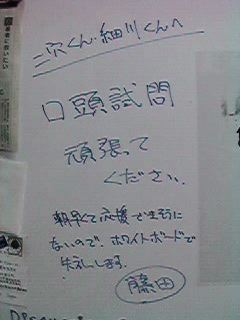 二宍くん・細川くんへ
口頭試問
頑張って
ください.
朝早くて応援できそうに
ないので、ホワイトボードで
失礼します.
藤田